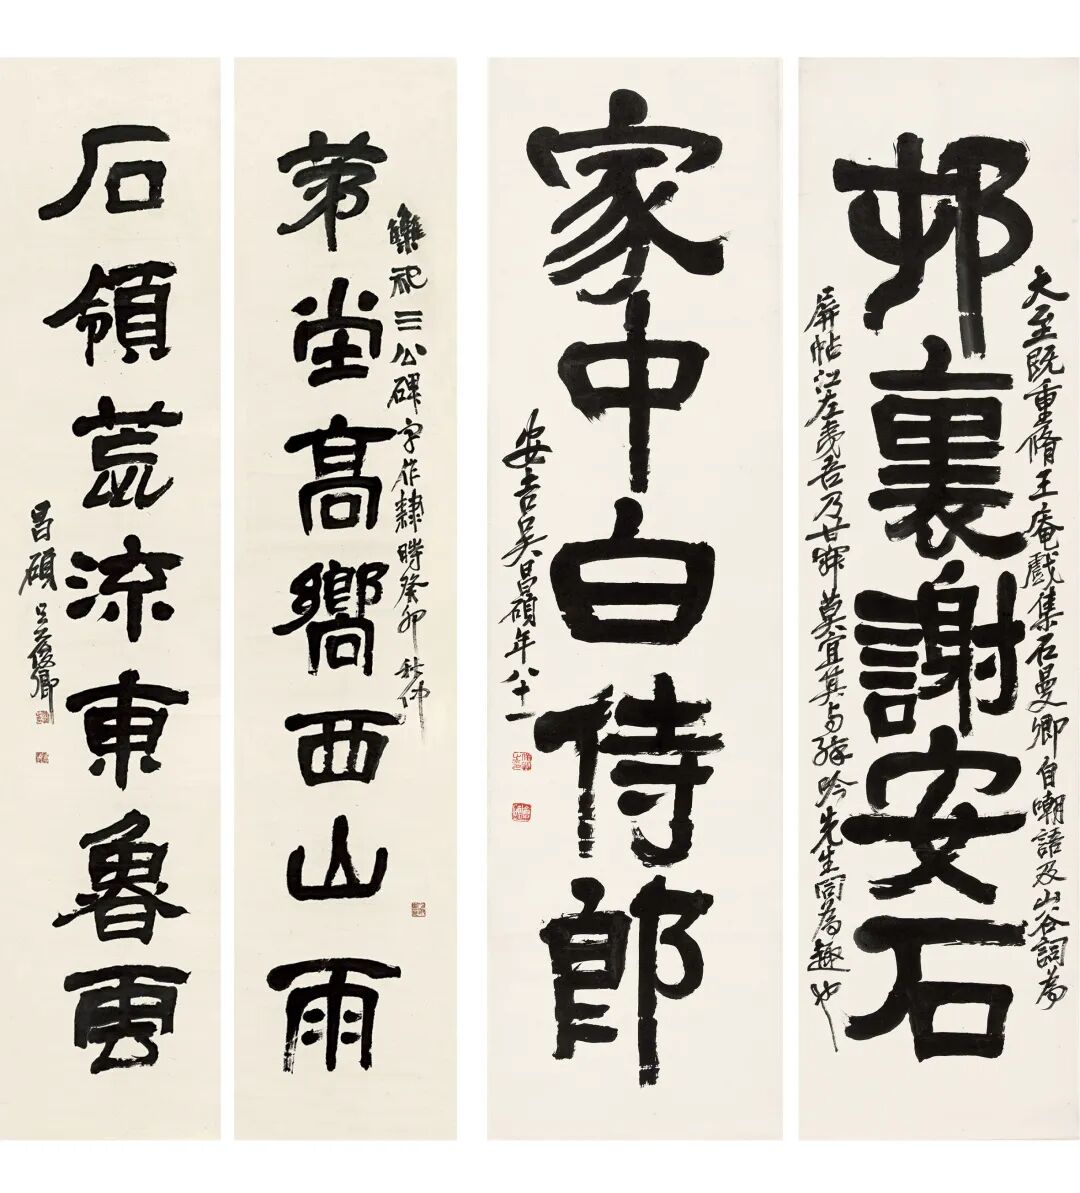 邨裏謝安石
大至既重脩王庵戲集石曼卿自嘲語及山谷詞為
屏帖江左夷吾乃甘寐莫宜其与 吟先生同為趣也
家中白侍郎
安吉吳昌碩年八十一
苐堂高嚮西山雨
祀三公碑字作隸 時癸卯秋仲
石領荒流東魯雲
昌碩吳俊卿